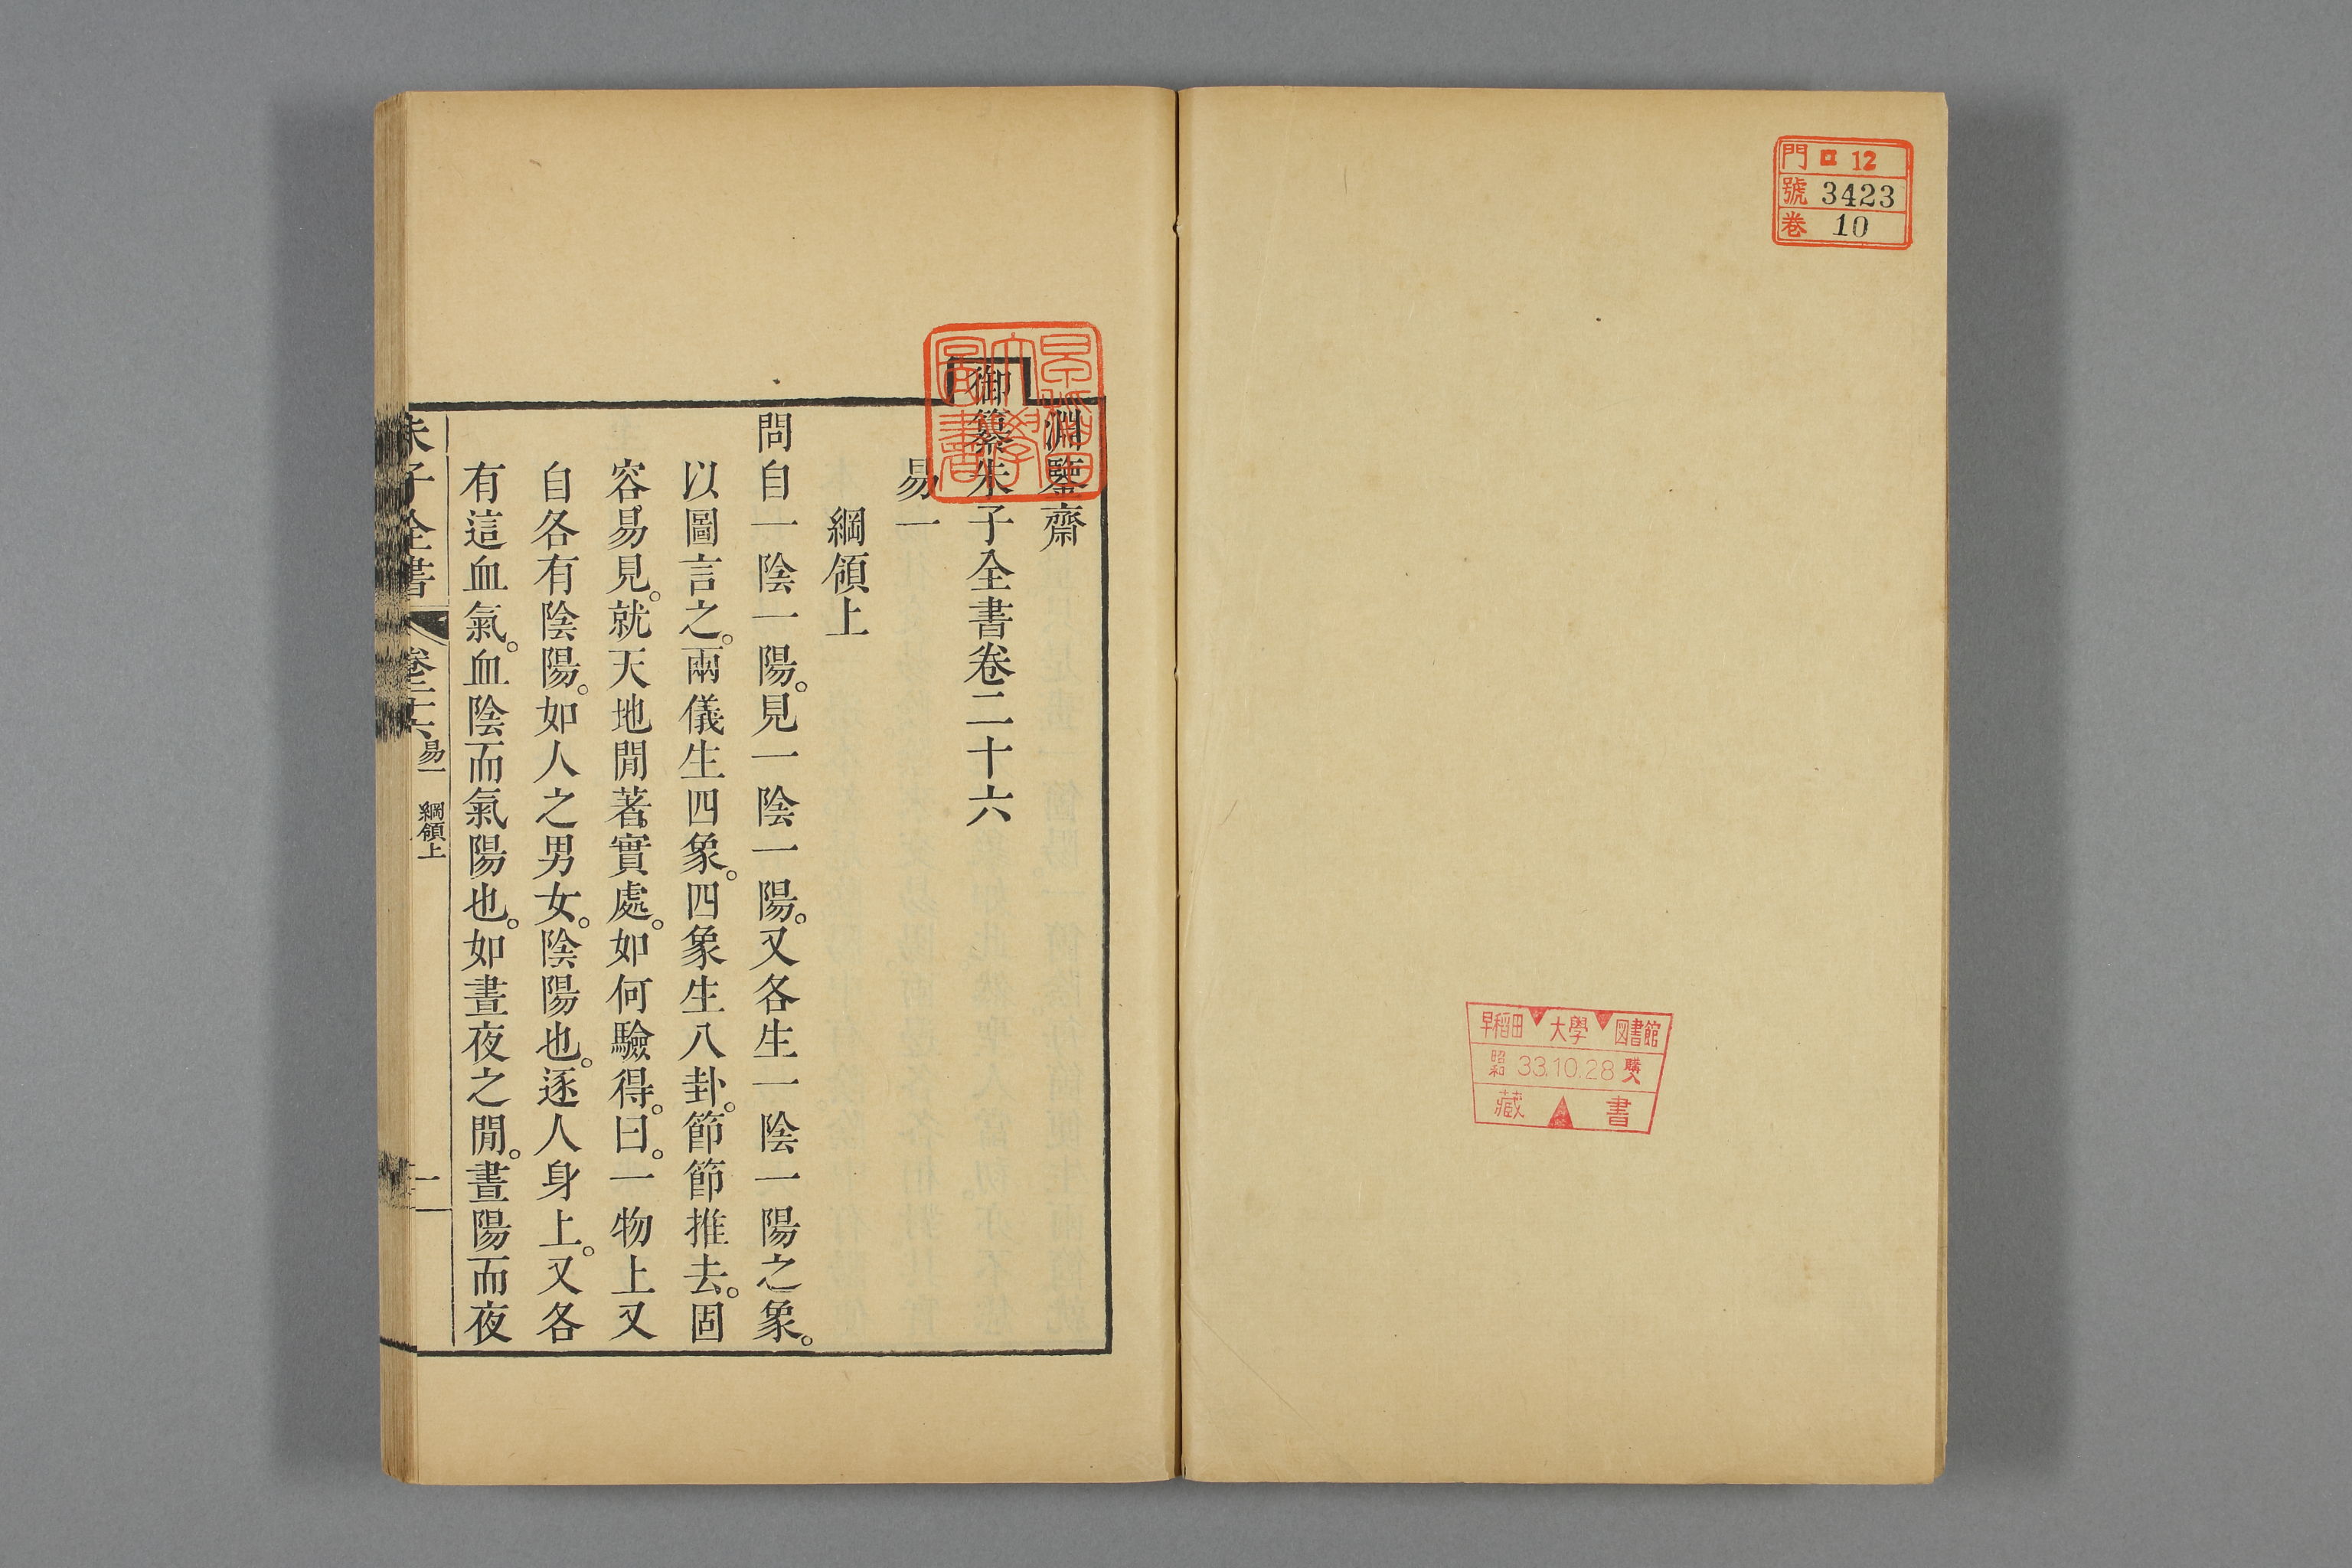 門 ロ 12
號 3423
卷 10
早稻田 大學 図書館
昭和 33.10.28 購入
藏書
淵鑒齋
御纂朱子全書卷二十六
易一
綱領上
問自一陰一陽。見一陰一陽。又各生一陰一陽之象。
以圖言之。兩儀生四象。四象生八卦。節節推去。固
容易見。就天地閒著實處。如何驗得。曰。一物上又
自各有陰陽。如人之男女。陰陽也。逐人身上。又各
有這血氣。血陰而氣陽也。如晝夜之閒。晝陽而夜
朱子全書 卷二十六 易一 綱領上 一
早稻田大學圖書